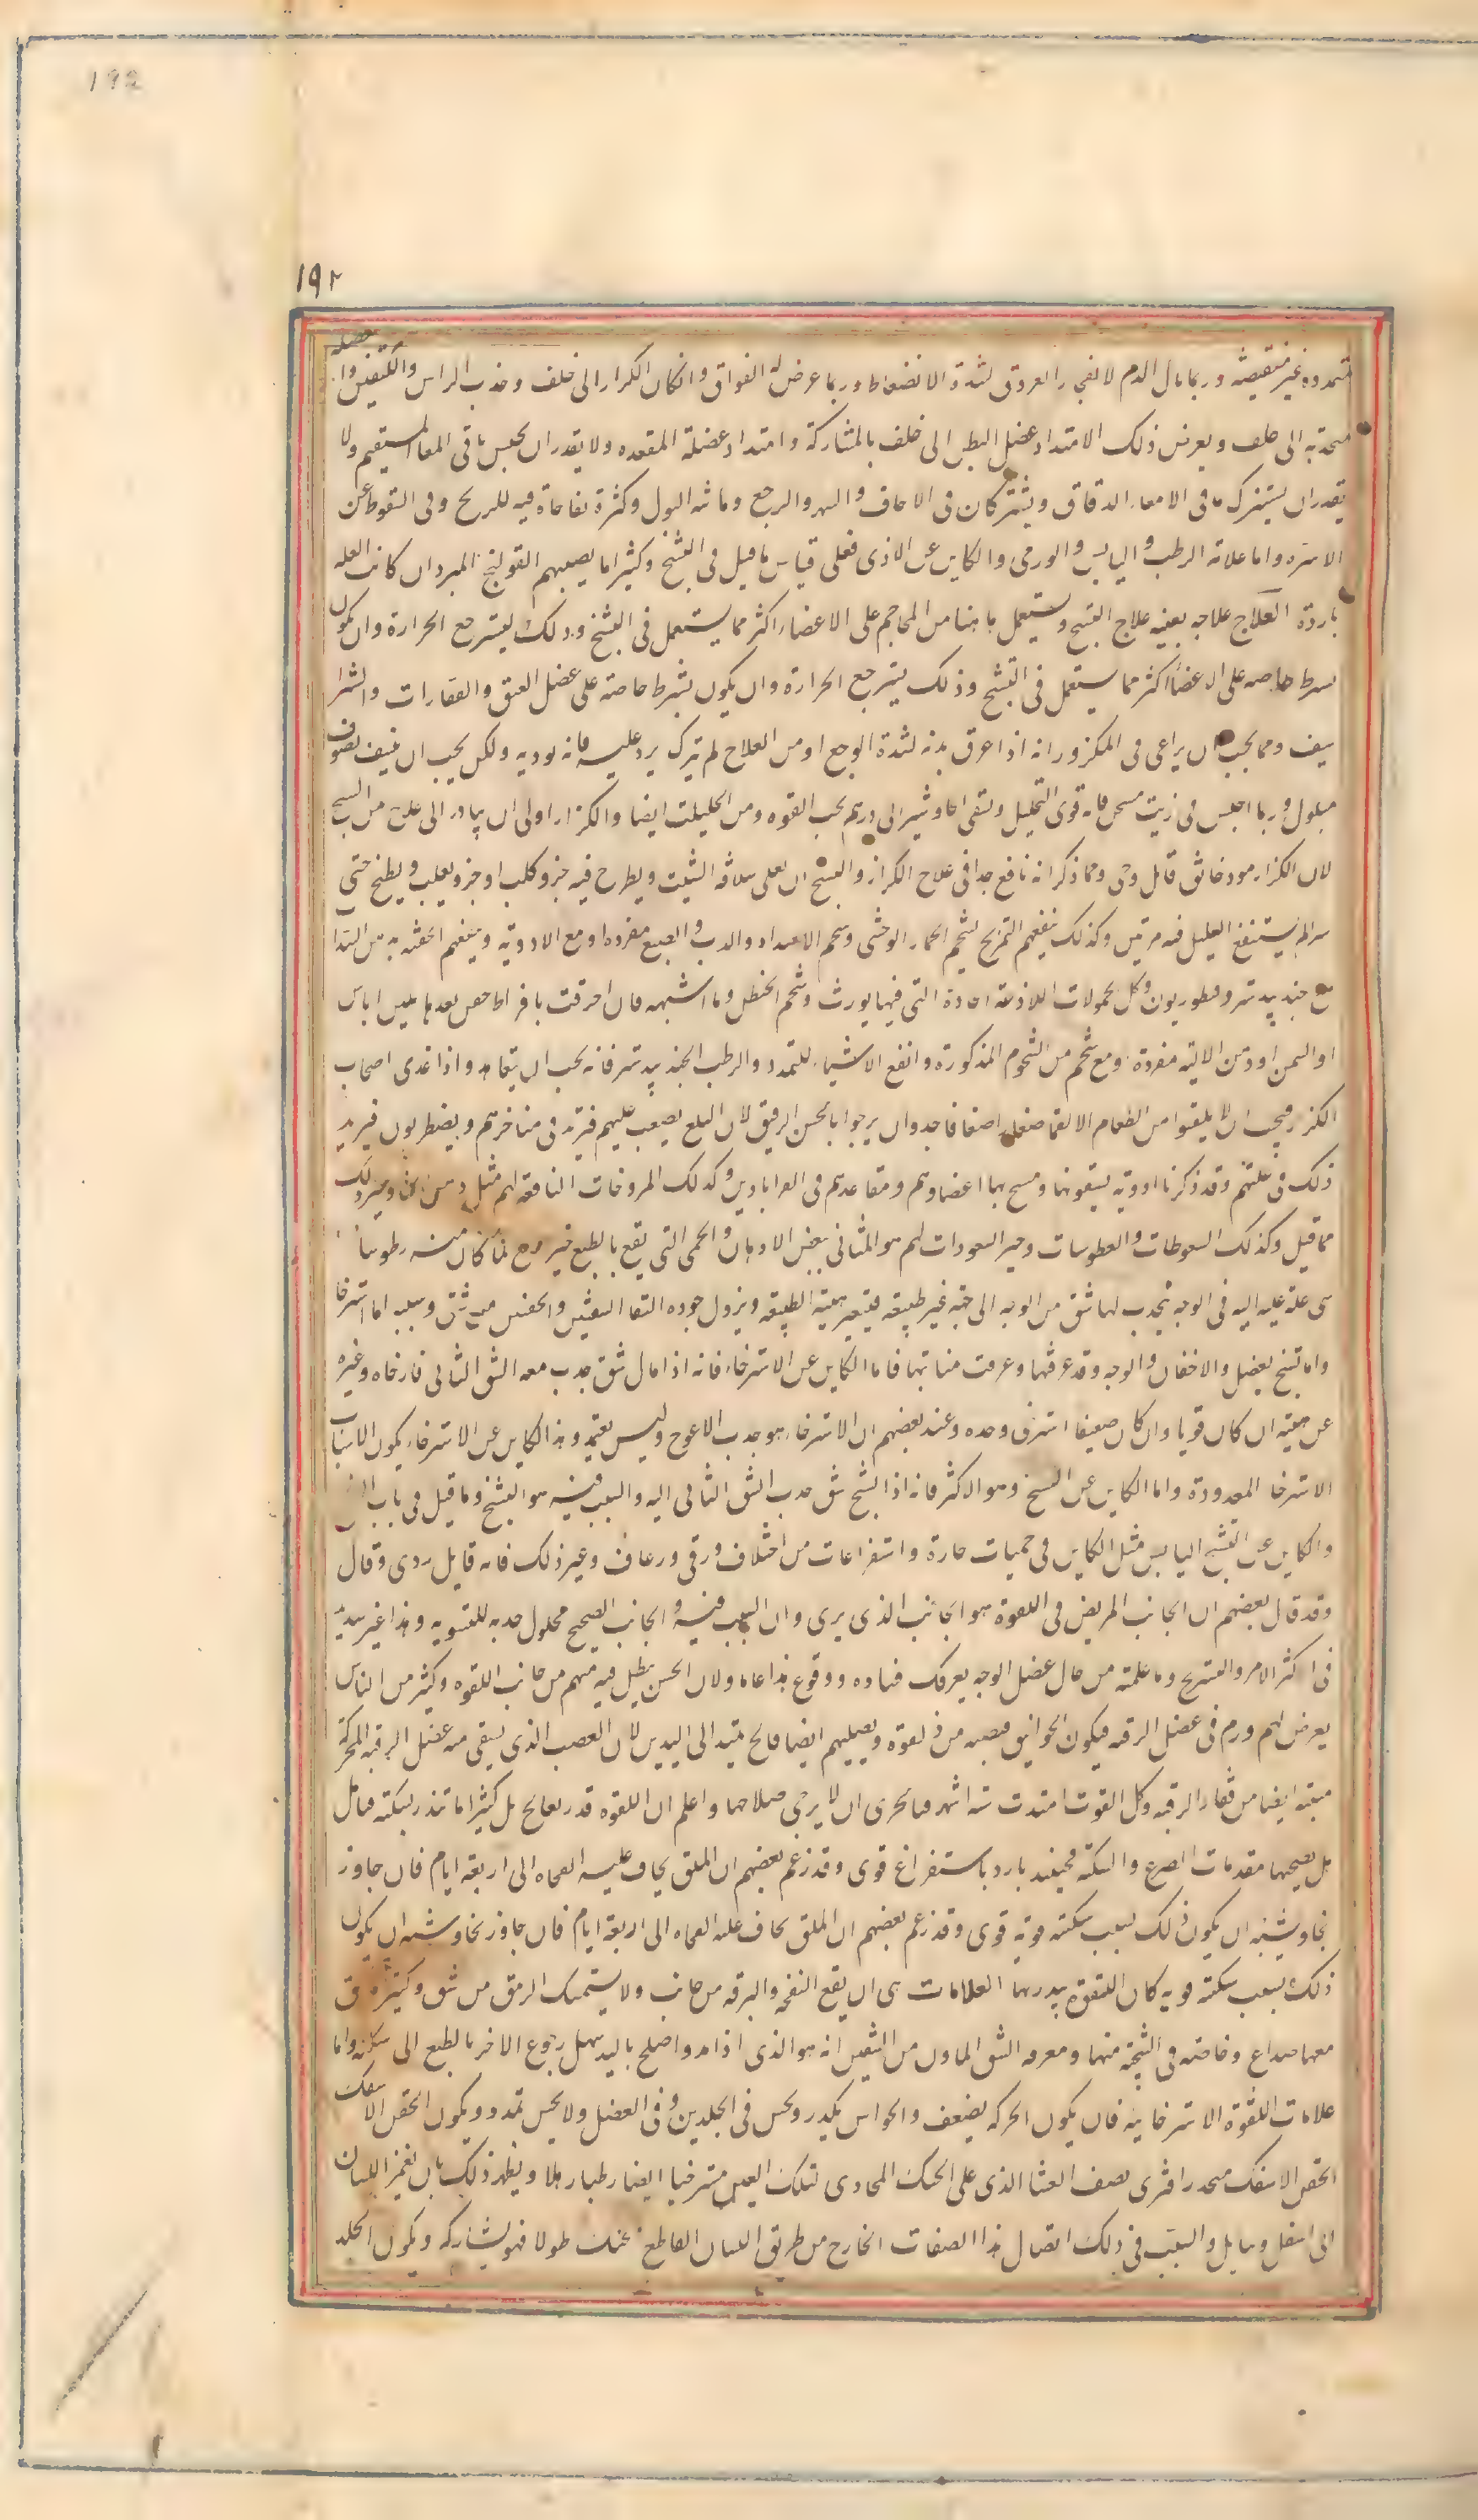 192
١٩٢
متمددة غير منقبضة وربما بال الدم لانفجار العروق لشدة الانضغاط وربما عرض له الفواق وان كان الكزاز الى خلف وجذب الراس والكتفين وا
عضله
منجذبة الى خلف ويعرض ذلك الامتداد عضل البطن الى خلف بالمشاركة وامتداد عضلة المقعدة ولا يقدر ان يحبس ما فى المعا المستقيم ولا
يقدر ان يستنزل ما فى الامعاء الدقاق ويشتركان فى الاختناق والسهر والوجع ومائية البول وكثرة نفاخات فيه للريح وفى السقوط عن
الاسرة واما علامة الرطب واليابس والورمى والكاين عن الاذى فعلى قياس ما قيل فى التشنج وكثيرا ما يصيبهم القولنج للبرد ان كانت العلة
باردة العلاج علاجه بعينه علاج التشنج ويستعمل هاهنا من المحاجم على الاعضاء اكثر مما يستعمل فى التشنج وذلك ليسترجع الحرارة وان يكون
بشرط خاصة على الاعضاء اكثر مما يستعمل فى التشنج وذلك يسترجع الحرارة وان يكون بشرط خاصة على عضل العنق والفقارات والشرا
سيف ومما يجب ان يراعى فى المكزوز انه اذا عرق بدنه لشدة الوجع او من العلاج لم يترك يبرد عليه فانه يوذيه ولكن يجب ان ينشف بصوف
مبلول وربما اجلس فى زيت مسخن فانه قوى التحليل ويسقى الجاوشير الى درهم بحسب القوة ومن الحلتيت ايضا والكزاز اولى ان يبادر الى علاجه من التشنج
لان الكزاز موذ خانق قاتل وحى ومما ذكر انه نافع جدا فى علاج الكزاز والتشنج ان يغلى سلاقة الشبت ويطرح فيه جرو كلب او جرو ثعلب ويطبخ حتى
يتهرا ليستنقع العليل فيه مرتين وكذلك ينفعهم التمريخ بشحم الحمار الوحشى وشحم الاسد والدب والضبع مفردة او مع الادوية وينفعهم الحقنة بدهن السذا
مع جندبيدستر وقنطوريون وكل الحمولات اللاذعة الحادة التى فيها بورق وشحم الحنظل وما اشبهه فان احرقت بافراط حقن بعدها بلبن الاتن
او السمن او دهن الالية مفردة ومع شحم من الشحوم المذكورة وانفع الاشياء للتمدد والرطب الجندبيدستر فانه يجب ان يتعاهد واذا غذى اصحاب
الكزاز فيجب ان لا يلقوا من الطعام الا لقما صغارا ضعافا جدا وان يرجوا بالحسو الرقيق لان البلع يصعب عليهم فيرتد فى مناخرهم ويضطربون فيزيد
ذلك فى علتهم وقد ذكرنا ادوية يسقونها ويمسح بها اعضاوهم ومقاعدهم فى القراباذين وكذلك المروخات النافعة لهم مثل دهن وغير ذلك
مما قيل وكذلك السعوطات والعطوسات وخير السعوطات لهم هو المتخذ فى بعض الادهان والحمى التى تقع بالطبع خير علاج لما كان منه رطوبيا
هى علة آلية فى الوجه ينجذب لها شق من الوجه الى جهة غير طبيعية فتتغير هيئته الطبيعية ويزول جودة التقا الشفتين والجفنين من شق وسببه اما استرخا
واما تشنج لعضل والاجفان والوجه وقد عرفتها وعرفت منابتها فاما الكاين عن الاسترخاء فانه اذا مال شق جذب معه الشق الثانى فارخاه وغيره
عن هيئته ان كان قويا وان كان ضعيفا استرخى وحده وعند بعضهم ان الاسترخاء هو جذب الاعوج وليس بمعتمد وهذا الكاين عن الاسترخاء يكون الاسباب
الاسترخا المعدودة واما الكاين عن التشنج وهو الاكثر فانه اذا تشنج شق جذب الشق الثانى اليه والسبب فيه هو التشنج وما قيل فى باب
والكاين عن التشنج اليابس مثل الكاين فى حميات حادة واستفراغات من اختلاف وقى ورعاف وغير ذلك فانه قاتل ردى وقال
وقد قال بعضهم ان الجانب المريض فى اللقوة هو الجانب الذى يرى وان السبب فيه والجانب الصحيح محلول جذبه للتسوية وهذا غير سديد
فى اكثر الامر والتشريح وما علمته من حال عضل الوجه يعرفك فساده ووقوع هذا عاما ولان الحس يبطل فيه منهم من جانب اللقوة وكثير من الناس
يعرض لهم ورم فى عضل الرقبة فيكون الخوانيق فيصيبه من ذلك لقوة ويصيبهم ايضا فالج يمتد الى اليدين لان العصب الذى يسقى منه عضل الرقبة المحركة
منبته ايضا من فقار الرقبة وكل لقوة امتدت ستة اشهر فبالحرى ان لا يرجى صلاحها واعلم ان اللقوة قد تنذر بفالج بل كثيرا ما تنذر بسكتة فتامل
هل يصحبها مقدمات الصرع والسكتة فحينئذ بادر باستفراغ قوى وقد زعم بعضهم ان الملقو يخاف عليه الفجاة الى اربعة ايام فان جاوز
نجا ويشبه ان يكون ذلك بسبب سكتة قوية قوى وقد زعم بعضهم ان الملقو يخاف عليه الفجاة الى اربعة ايام فان جاوز نجا ويشبه ان يكون
ذلك بسبب سكتة قوية كان اللقوة ينذر بها العلامات هى ان يقع النفخة والبزقة من جانب ولا يستمسك الريق من شق وكثيرا
معها صداع وخاصة فى التشنجية منها ومعرفة الشق الماوف من الشقين انه هو الذى اذا مد واصلح باليد سهل رجوع الاخر بالطبع الى شكله واما
علامات اللقوة الاسترخائية فان يكون الحركة يضعف والحواس يكدر ويحس فى الجلد لين وفى العضل ولا يحس تمدد ويكون الجفن الاسفل
الجفن الاسفل منحدرا فترى نصف الغشا الذى على الحنك المحاذى لتلك العين مسترخيا ايضا رطبا رهلا ويظهر ذلك بان يغمز اللسان
الى اسفل وتامل والسبب فى ذلك اتصال هذا الصفاق الخارج من طريق اللسان القاطع للحنك طولا فهو يشاركه ويكون الجلد